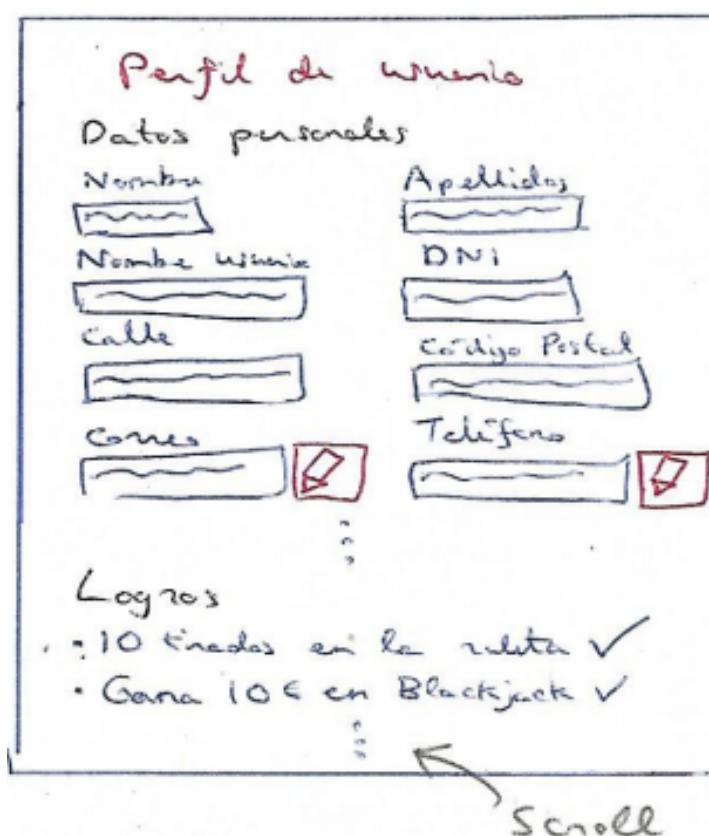 Perfil de usuario
Datos personales
Nombre Apellidos
Nombre usuario DNI
Calle Código Postal
Correo Teléfono
Logros
· 10 tiradas en la ruleta ✓
· Gana 10€ en Blackjack ✓
Scroll